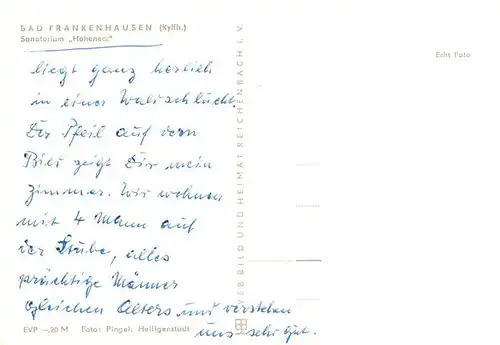 BAD FRANKENHAUSEN (Kyffh.)
Sanatorium „Hoheneck“
liegt ganz herlich
in einer Waldschlucht.
Der Pfeil auf dem
Bild zeigt Dir mein
Zimmer. Wir wohnen
mit 4 Mann auf
der Stube, alles
prächtige Männer
gleichen Alters und verstehen
uns sehr gut.
EVP —,20 M Foto: Pingel, Heiligenstadt
VEB BILD UND HEIMAT REICHENBACH i. V.
Echt Foto